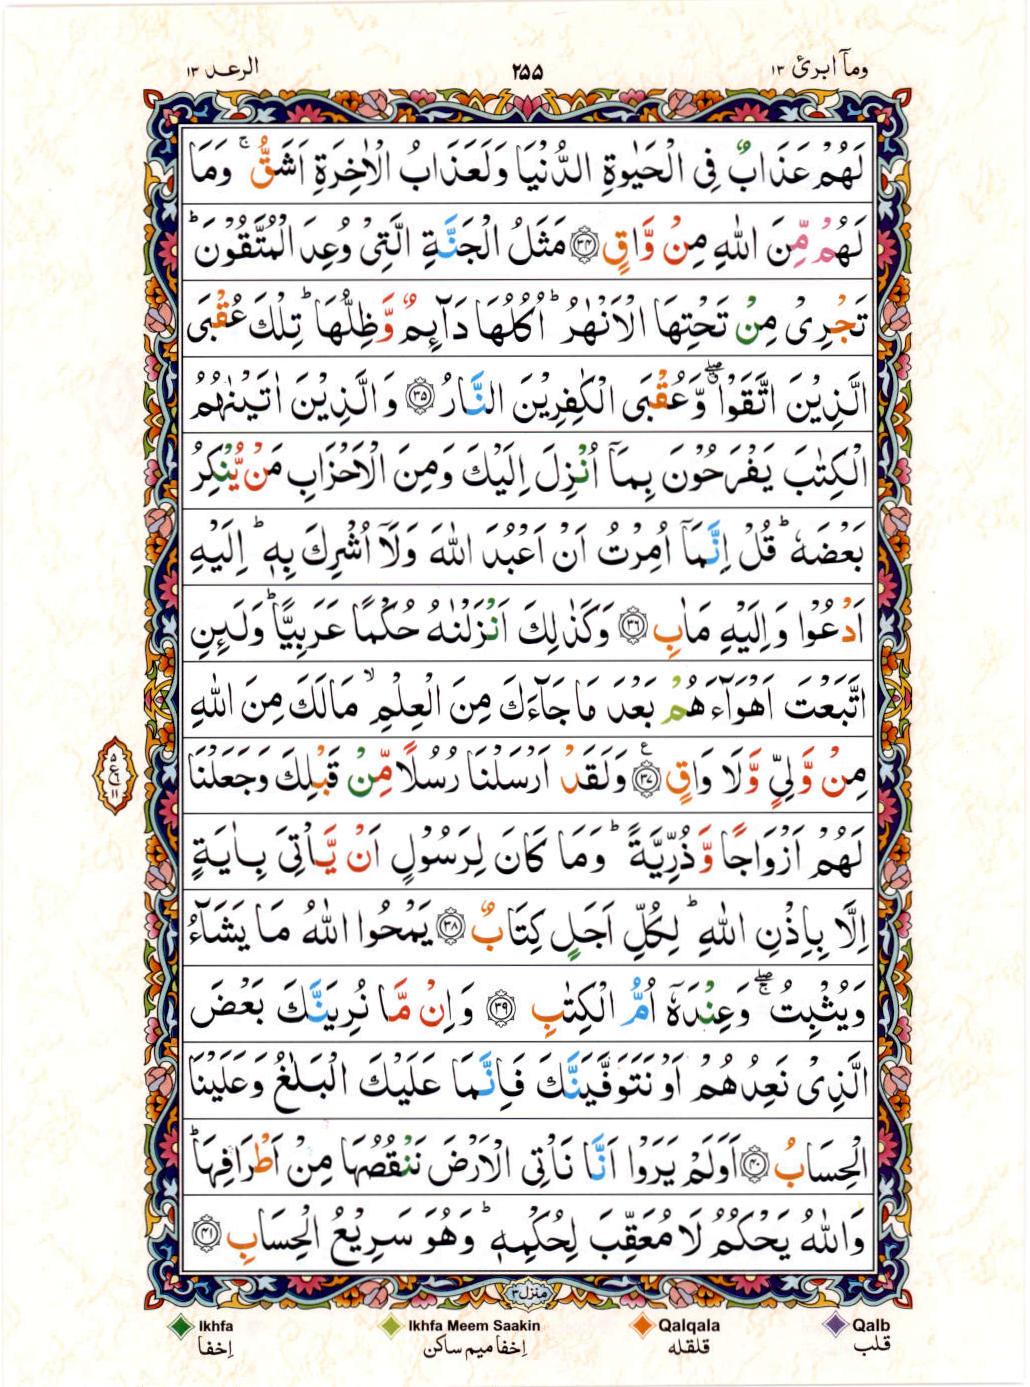 ومآ ابرئ ۱۳
۲۵۵
الرعد ۱۳
لَهُمْ عَذَابٌ فِی الْحَیٰوةِ الدُّنْیَا وَلَعَذَابُ الْاٰخِرَةِ اَشَقُّ ۚ وَمَا
لَهُمْ مِّنَ اللّٰهِ مِنْ وَّاقٍ ﴿۳۴﴾ مَثَلُ الْجَنَّةِ الَّتِیْ وُعِدَ الْمُتَّقُوْنَ ؕ
تَجْرِیْ مِنْ تَحْتِهَا الْاَنْهٰرُ ؕ اُكُلُهَا دَآئِمٌ وَّظِلُّهَا ؕ تِلْكَ عُقْبَی
الَّذِیْنَ اتَّقَوْا ۖۗ وَّعُقْبَی الْكٰفِرِیْنَ النَّارُ ﴿۳۵﴾ وَالَّذِیْنَ اٰتَیْنٰهُمُ
الْكِتٰبَ یَفْرَحُوْنَ بِمَاۤ اُنْزِلَ اِلَیْكَ وَمِنَ الْاَحْزَابِ مَنْ یُّنْكِرُ
بَعْضَهٗ ؕ قُلْ اِنَّمَاۤ اُمِرْتُ اَنْ اَعْبُدَ اللّٰهَ وَلَاۤ اُشْرِكَ بِهٖ ؕ اِلَیْهِ
اَدْعُوْا وَاِلَیْهِ مَاٰبِ ﴿۳۶﴾ وَكَذٰلِكَ اَنْزَلْنٰهُ حُكْمًا عَرَبِیًّا ؕ وَلَئِنِ
اتَّبَعْتَ اَهْوَآءَهُمْ بَعْدَ مَا جَآءَكَ مِنَ الْعِلْمِ ۙ مَا لَكَ مِنَ اللّٰهِ
مِنْ وَّلِیٍّ وَّلَا وَاقٍ ﴿۳۷﴾ؑ وَلَقَدْ اَرْسَلْنَا رُسُلًا مِّنْ قَبْلِكَ وَجَعَلْنَا
۵
ع
۱۱
لَهُمْ اَزْوَاجًا وَّذُرِّیَّةً ؕ وَمَا كَانَ لِرَسُوْلٍ اَنْ یَّاْتِیَ بِاٰیَةٍ
اِلَّا بِاِذْنِ اللّٰهِ ؕ لِكُلِّ اَجَلٍ كِتَابٌ ﴿۳۸﴾ یَمْحُوا اللّٰهُ مَا یَشَآءُ
وَیُثْبِتُ ۖۚ وَعِنْدَهٗۤ اُمُّ الْكِتٰبِ ﴿۳۹﴾ وَاِنْ مَّا نُرِیَنَّكَ بَعْضَ
الَّذِیْ نَعِدُهُمْ اَوْ نَتَوَفَّیَنَّكَ فَاِنَّمَا عَلَیْكَ الْبَلٰغُ وَعَلَیْنَا
الْحِسَابُ ﴿۴۰﴾ اَوَلَمْ یَرَوْا اَنَّا نَاْتِی الْاَرْضَ نَنْقُصُهَا مِنْ اَطْرَافِهَا ؕ
وَاللّٰهُ یَحْكُمُ لَا مُعَقِّبَ لِحُكْمِهٖ ؕ وَهُوَ سَرِیْعُ الْحِسَابِ ﴿۴۱﴾
منزل ۳
Ikhfa Ikhfa Meem Saakin Qalqala Qalb
قلب قلقله اِخفا میم ساکن اِخفا